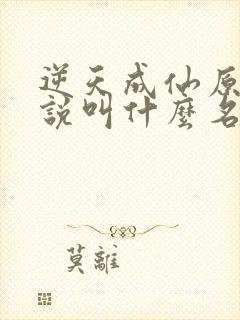 逆天成仙原
說叫什麼名
莫離